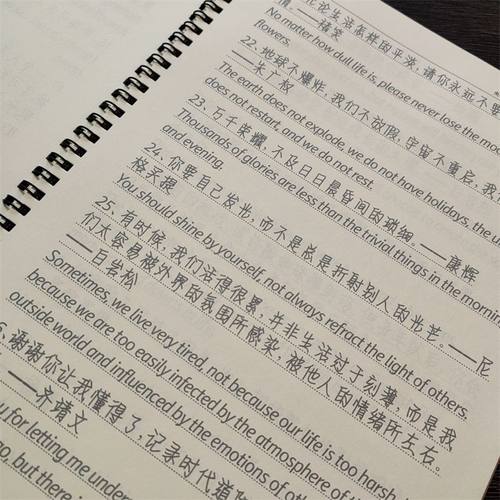 论生活怎样的平淡,请你永远不要
情。——褚雯
No matter how dull life is, please never lose the moo
flowers.
22、地球不爆炸,我们不放假,宇宙不重启,我
——朱广权
The earth does not explode, we do not have holidays, the u
does not restart, and we do not rest.
23、万千荣耀,不及日日晨昏间的琐细。——康辉
Thousands of glories are less than the trivial things in the mornin
and evening.
24、你要自己发光,而不是总是折射别人的光芒。——尼
格买提
You should shine by yourself, not always refract the light of others.
25、有时候,我们活得很累,并非生活过于刻薄,而是我
们太容易被外界的氛围所感染,被他人的情绪所左右。
——白岩松
Sometimes, we live very tired, not because our life is too harsh
because we are too easily infected by the atmosphere of th
outside world and influenced by the emotions of othe
6、谢谢你让我懂得了,记录时代
——齐靖文
u for letting me under
o, but there